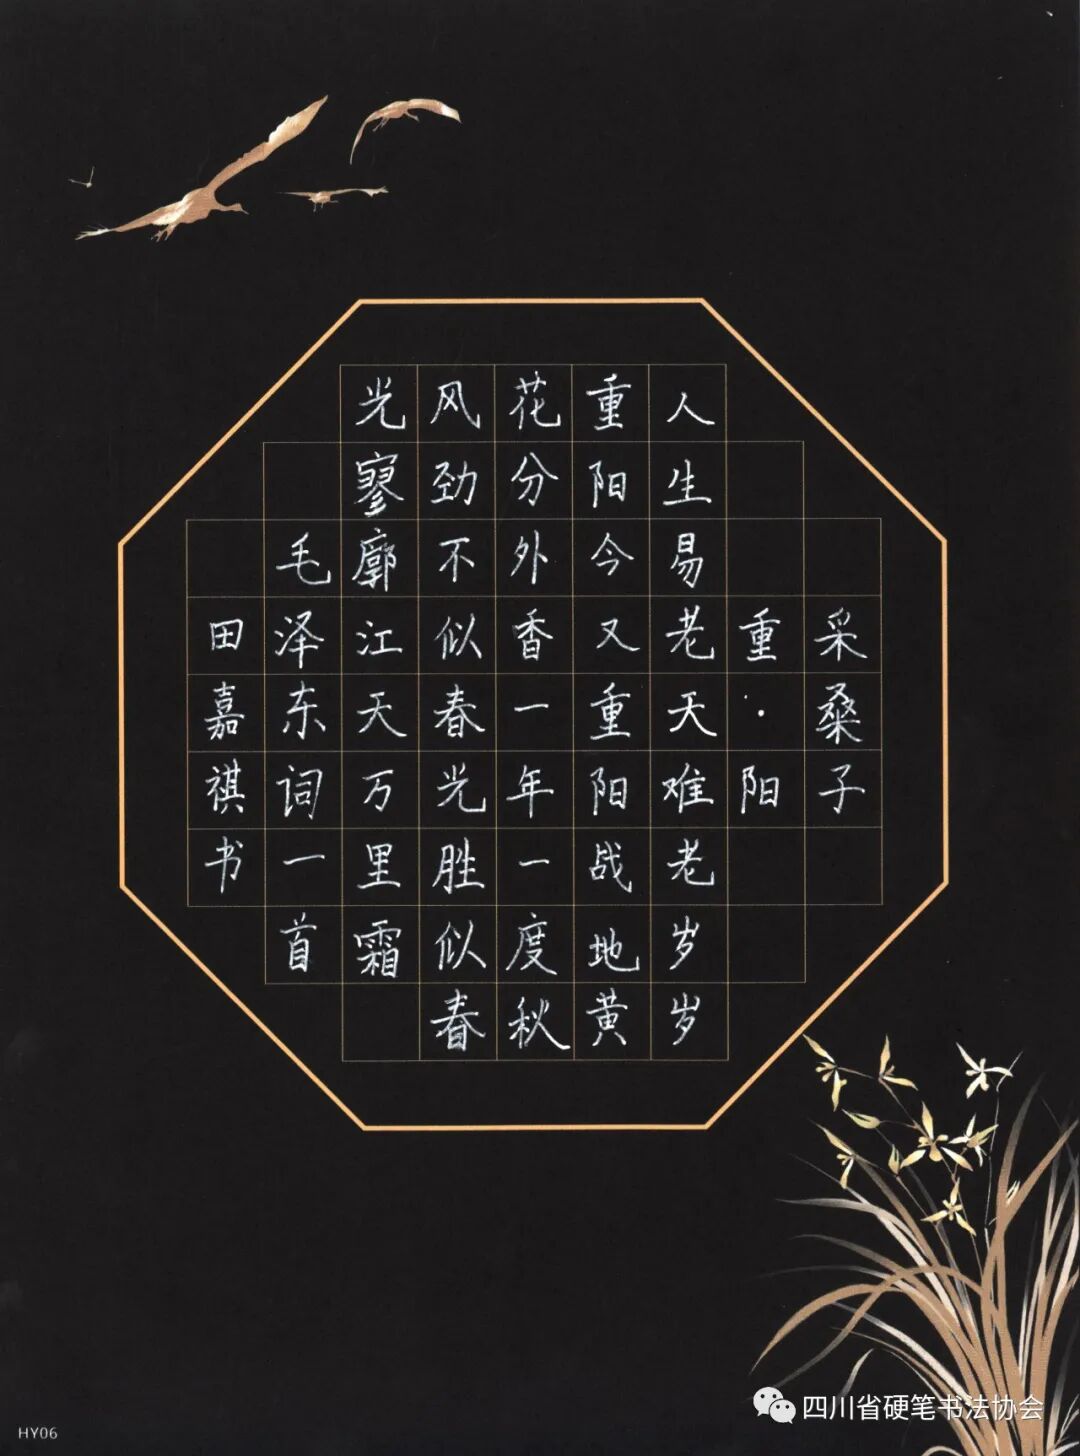 采桑子
重·阳
人生易老天难老岁岁
重阳今又重阳战地黄
花分外香一年一度秋
风劲不似春光胜似春
光寥廓江天万里霜
毛泽东词一首
田嘉祺书
HY06
四川省硬笔书法协会